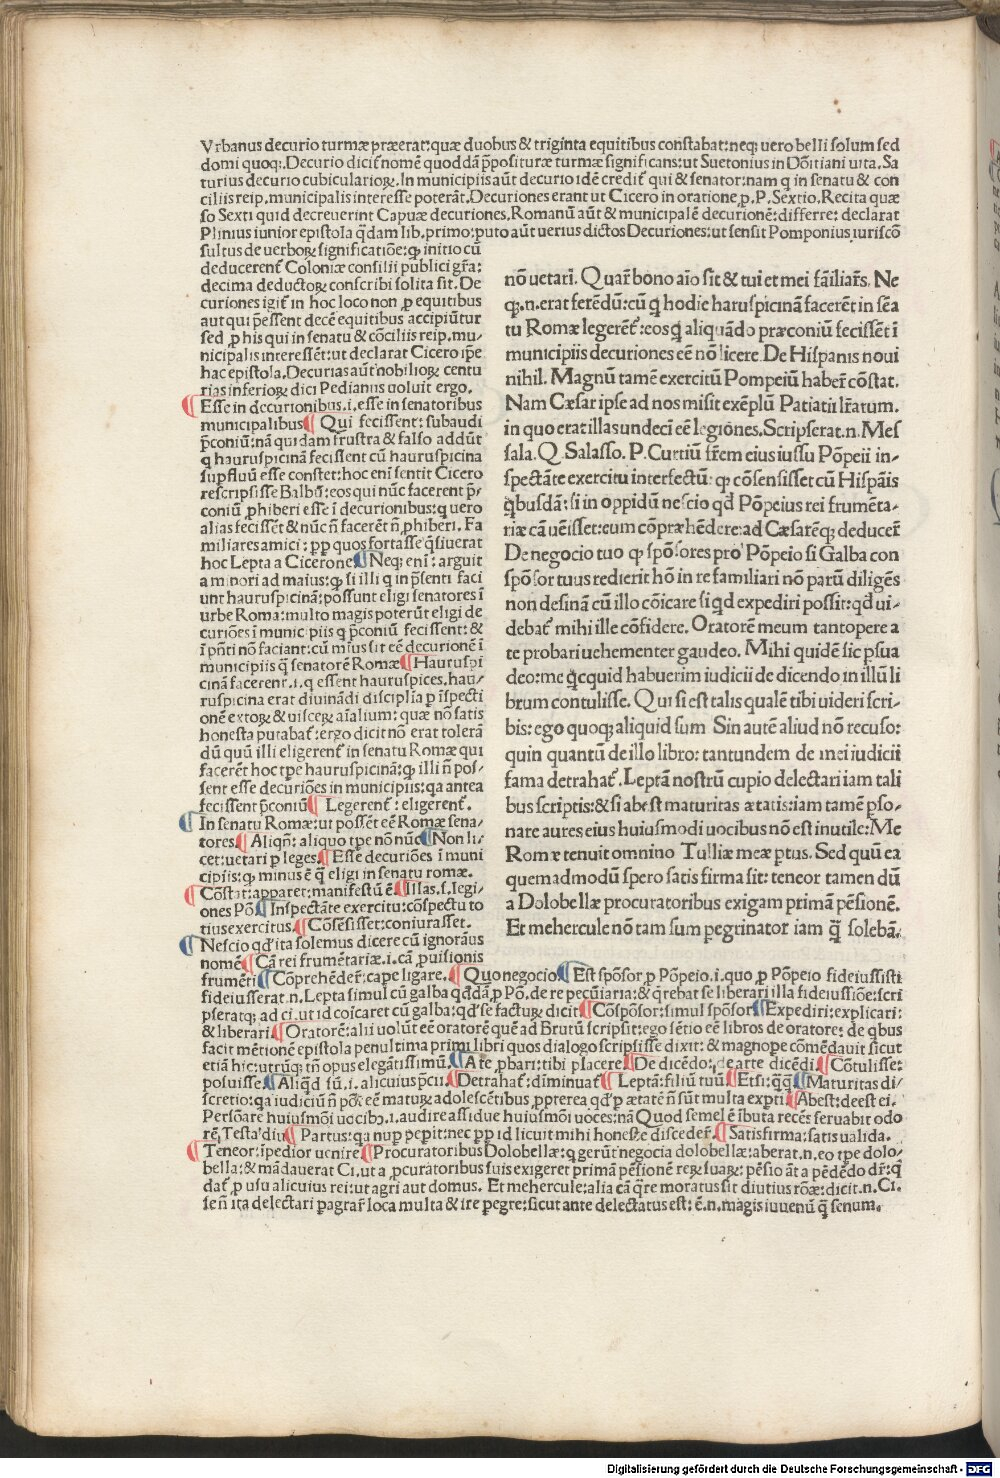 Vrbanus decurio turmæ præerat:quæ duobus & triginta equitibus constabat:neqꝫ uero belli solum sed
domi quoqꝫ.Decurio dicit̃ nomẽ quoddã p̃posituræ turmæ significans:ut Suetonius in Dõitiani uita.Sa
turius decurio cubiculariorꝝ.In municipiis aũt decurio idẽ credit̃ qui & senator:nam q in senatu & con
ciliis reip.municipalis interesse poterãt.Decuriones erant ut Cicero in oratione.p.P.Sextio.Recita quæ
so Sexti quid decreuerint Capuæ decuriones.Romanũ aũt & municipalẽ decurionẽ:differre: declarat
Plinius iunior epistola q̃dam lib.primo:puto aũt uerius dictos Decuriones:ut sensit Pomponius iuriscõ
sultus de uerborꝝ significatiõe:ꝙ initio cũ
deducerent̃ Coloniæ consilii publici gr̃a:
decima deductorꝝ conscribi solita sit. De
curiones igit̃ in hoc loco non ꝓ equitibus
aut qui p̃essent decẽ equitibus accipiũtur
sed ꝓ his qui in senatu & cõciliis reip.mu⸗
nicipalis interessẽt:ut declarat Cicero ip̃e
hac epistola.Decurias aũt nobiliorꝝ centu
rias inferiorꝝ dici Pedianus uoluit ergo.
Esse in decurionibus.i.esse in senatoribus
municipalibus Qui fecissent: subaudi
p̃coniũ:nã quidam frustra & falso addũt
q hauruspicinã fecissent cũ hauruspicina
supfluũ esse constet:hoc enĩ sentit Cicero
rescripsisse Balbũ:eos qui nũc facerent p̃⸗
coniũ ꝓhiberi esse ĩ decurionibus:q uero
alias fecissẽt & nũc ñ facerẽt ñ ꝓhiberi. Fa
miliares amici: ꝓp quos fortasse q̃siuerat
hoc Lepta a Cicerone Neqꝫ enĩ: arguit
a minori ad maius:ꝙ si illi q in p̃senti faci
unt hauruspicinã:possunt eligi senatores ĩ
urbe Roma:multo magis poterũt eligi de
curiões ĩ municipiis q p̃coniũ fecissent: &
ĩ p̃nti nõ faciant:cũ mĩus sit eẽ decurionẽ ĩ
municipiis q̃ senatorẽ Romæ Hauruspi
cinã facerent.i.q essent hauruspices.hau⸗
ruspicina erat diuinãdi disciplĩa ꝑ ĩspecti
onẽ extorꝝ & uiscerꝝ aĩalium: quæ nõ satis
honesta putabat̃:ergo dicit nõ erat tolerã
dũ quũ illi eligerent̃ in senatu Romæ qui
facerẽt hoc tp̃e hauruspicinã:ꝙ illi ñ pos⸗
sent esse decuriões in municipiis:qa antea
fecissent p̃coniũ Legerent̃: eligerent̃.
In senatu Romæ:ut possẽt eẽ Romæ sena⸗
tores. Aliqñ: aliquo tp̃e nõ nũc Non li⸗
cet:uetari ꝑ leges. Esse decuriões ĩ muni
cipiis:ꝙ minus ẽ q̃ eligi in senatu romæ.
Cõstat:apparet:manifestũ ẽ Illas.s.legi⸗
ones Põ Inspectãte exercitu:cõspectu to
tius exercitus. Cõsẽsisset:coniurasset.
Nescio qd̃ ita solemus dicere cũ ignorãus
nomẽ Cã rei frumẽtariæ.i.cã ꝓuisionis
nõ uetari. Quar̃ bono aĩo sit & tui et mei fãiliar̃s. Ne
qꝫ.n.erat ferẽdũ:cũ q̃ hodie haruspicinã facerẽt in sẽa
tu Romæ legerẽt̃:eos q̃ aliquãdo præconiũ fecissẽt ĩ
municipiis decuriones eẽ nõ licere.De Hispanis noui
nihil. Magnũ tamẽ exercitũ Pompeiũ haber̃ cõstat.
Nam Cæsar ipse ad nos misit exẽplũ Patiatii lr̃arum.
in quo erat illas undecĩ eẽ legiões.Scripserat.n.Mes
sala.Q. Salasso. P.Curtiũ fr̃em eius iussu Põpeii in⸗
spectãte exercitu interfectũ: ꝙ cõsensisset cũ Hispãis
q̃busdã:si in oppidũ nescio qd̃ Põpeius rei frumẽta⸗
riæ cã uẽisset:eum cõpræhẽdere:ad Cæsarẽqꝫ deducer̃
De negocio tuo ꝙ spõsores pro Põpeio si Galba con
spõsor tuus redierit hõ in re familiari nõ parũ diligẽs
non desinã cũ illo cõicare si q̃d expediri possit:qd̃ ui⸗
debat̃ mihi ille cõfidere. Oratorẽ meum tantopere a
te probari uehementer gaudeo. Mihi quidẽ sic ꝑsua
deo:me q̃cquid habuerim iudicii de dicendo in illũ li
brum contulisse. Qui si est talis qualẽ tibi uideri scri⸗
bis:ego quoqꝫ aliquid sum Sin autẽ aliud nõ recuso:
quin quantũ de illo libro: tantundem de mei iudicii
fama detrahat̃. Leptã nostrũ cupio delectari iam tali
bus scriptis:& si abest maturitas ætatis:iam tamẽ ꝑso⸗
nare aures eius huiusmodi uocibus nõ est inutile:Me
Romæ tenuit omnino Tulliæ meæ ꝑtus. Sed quũ ea
quemadmodũ spero satis firma sit: teneor tamen dũ
a Dolobellæ procuratoribus exigam primã pẽsionẽ.
Et mehercule nõ tam sum ꝑegrinator iam q̃ solebã.
frumẽti Cõprehẽder̃:cape ligare. Quo negocio Est spõsor ꝓ Põpeio.i.quo ꝓ Põpeio fideiussisti
fideiusserat.n.Lepta simul cũ galba qd̃dã ꝓ Põ.de re pecũiaria:& q̃rebat se liberari illa fideiussiõe:scri
pseratqꝫ ad ci.ut id coicaret cũ galba:qd̃ se facturꝝ dicit Cõspõsor:simul spõsor Expediri:explicari:
& liberari Oratorẽ:alii uolũt eẽ oratorẽ quẽ ad Brutũ scripsit:ego sẽtio eẽ libros de oratore: de q̃bus
facit mẽtionẽ epistola penultima primi libri quos dialogo scripsisse dixit: & magnope cõmẽdauit sicut
etiã hic:utrũqꝫ tñ opus elegãtissimũ. A te ꝓbari:tibi placere De dicẽdo:de arte dicẽdi Cõtulisse:
posuisse. Aliq̃d sũ.i.alicuius p̃cii. Detrahat̃:diminuat̃ Leptã:filiũ tuũ Etsi:q̃q̃ Maturitas di⸗
scretio:qa iudiciũ ñ põt eẽ maturꝝ adolescẽtibus ꝓpterea qd̃ ꝑ ætatẽ ñ sũt multa expti Abest:deest ei.
Persõare huiusmõi uocibꝫ.i.audire assidue huiusmõi uoces:nã Quod semel ẽ ĩbuta recẽs seruabit odo
rẽ.Testa diu Partus:qa nup̃ pepit:nec ꝓp id licuit mihi honeste discedere. Satis firma:satis ualida.
Teneor:ĩpedior uenire Procuratoribus Dolobellæ:q gerũt negocia dolobellæ:aberat.n.eo tp̃e dolo⸗
bella:& mãdauerat Ci.ut a ꝓcuratoribus suis exigeret primã pẽsionẽ rerꝝ suarꝝ:pẽsio ãt a pẽdẽdo dr̃:q̃
dat̃ ꝓ usu alicuius rei:ut agri aut domus. Et mehercule:alia cã q̃re moratus sit diutius rõæ:dicit.n.Ci.
se ñ ita delectari ꝑagrar̃ loca multa & ire ꝑegre:sicut ante delectatus est: ẽ.n.magis iuuenũ q̃ senum.
Digitalisierung gefördert durch die Deutsche Forschungsgemeinschaft - DFG